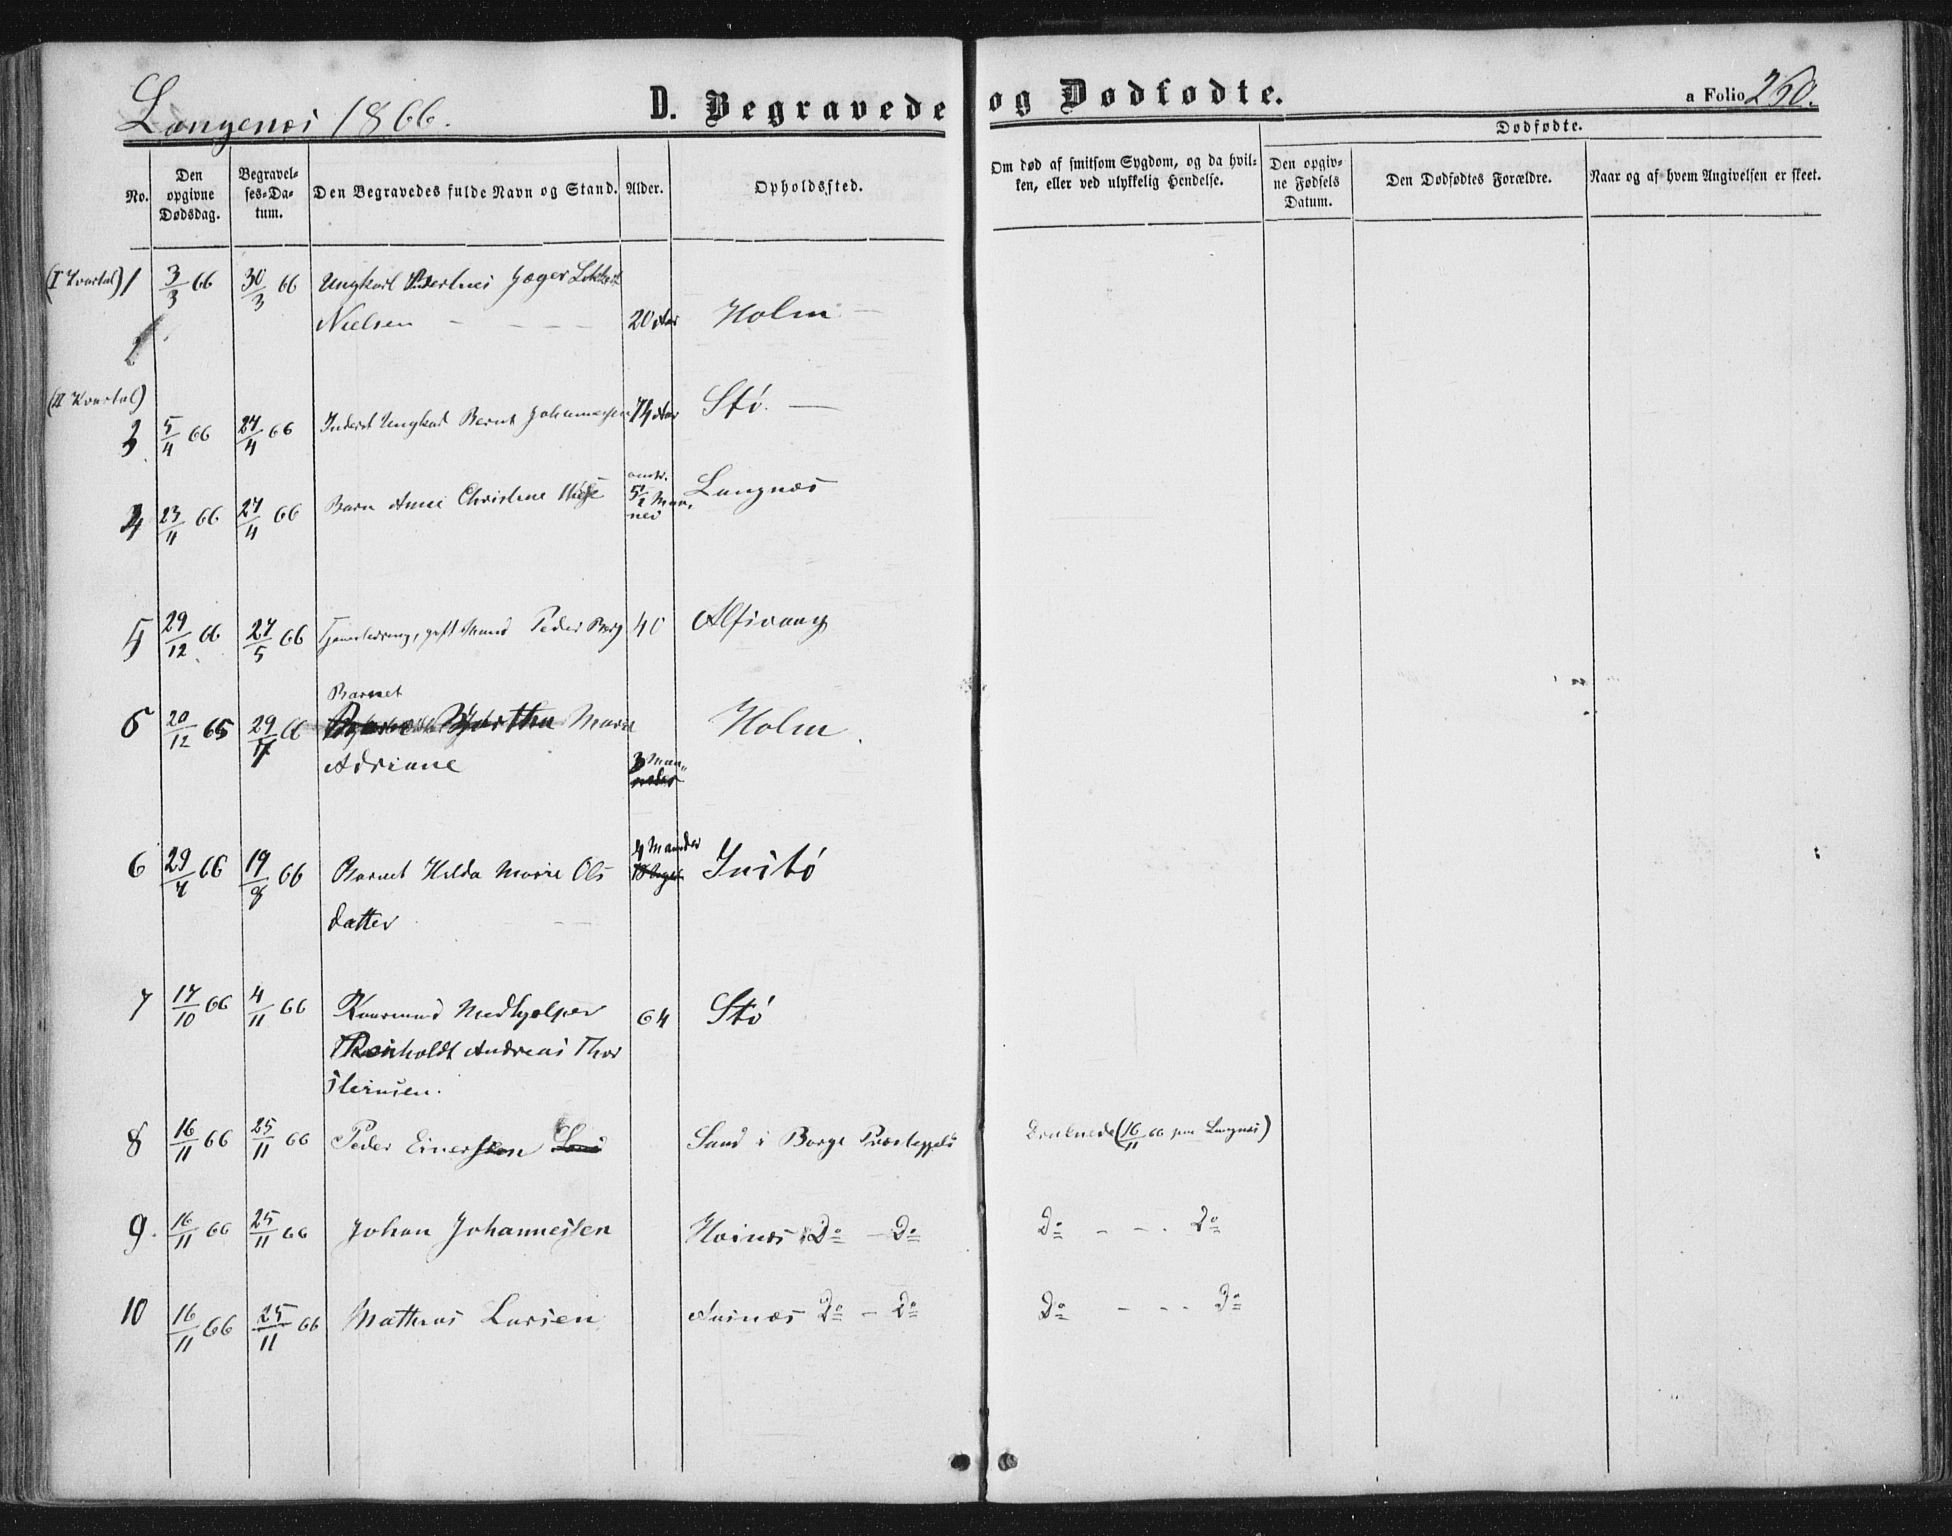 Langenæs 1866.
D. Begravede og Dødfødte.
a Folio 260.
No.
Den opgivne Dødsdag.
Begravelses-Datum.
Den Begravedes fulde Navn og Stand.
Alder.
Opholdssted.
Om død af smitsom Sygdom, og da hvilken, eller ved ulykkelig Hendelse.
Dødfødte.
Den opgivne Fødsels Datum.
Den Dødfødtes Forældre.
Naar og af hvem Angivelsen er skeet.
(I Kvartal) 1 3/3 66 30/3 66 Ungkarl Jæger
Nielsen 20 Aar Holm
(II Kvartal)
3 5/4 66 27/4 66 Inderst Ungkarl Bernt Johannesen Aar Stø.
4 23/4 66 27/4 66 Barn Anne Christine omtr. 5 1/2 Maaned Langnæs
5 29/12 66 27/5 66 gift Mand Peder Berg 40 Alfsvaag
Barnet
20/12 65 29/7 66 Marie
Adriane 3 Maaneder Holm
6 29/4 66 19/8 66 Barnet Hilda Marie Ols
datter 4 Maander Stø
7 17/10 66 4/11 66 Kaarmand Medhjælper
Reinholdt Andreas Thor
steinsen. 64 Stø
8 16/11 66 25/11 66 Peder Einersen Sand i Borge Præstegjeld Druknede (16/11 66 paa Langnæs)
9. 16/11 66 25/11 66 Johan Johannessen Do - Do Do - - Do
10 16/11 66 25/11 66 Mathias Larsen Do - Do Do - - - Do